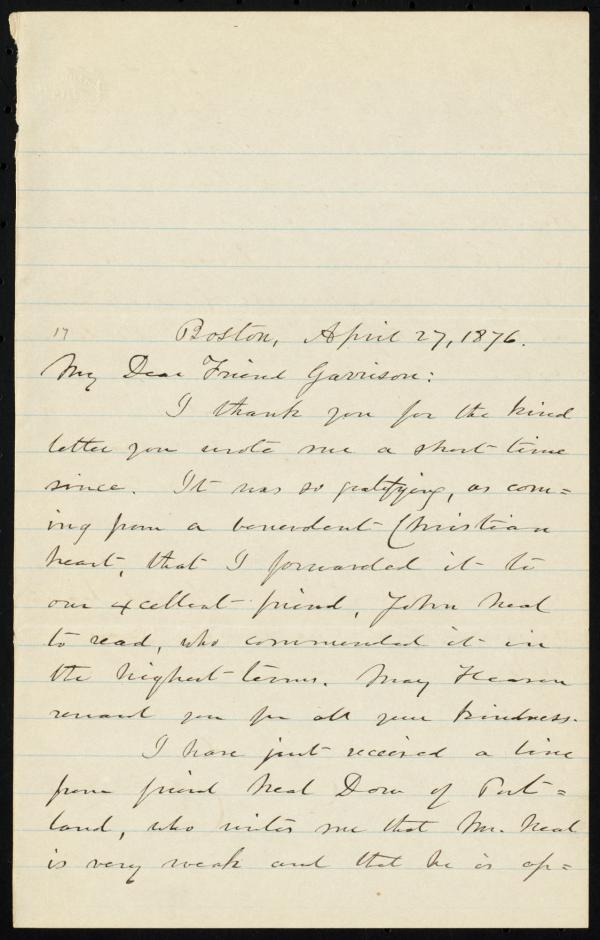 17
Boston, April 27, 1876.
My Dear Friend Garrison:
I thank you for the kind
letter you wrote me a short time
since. It was so gratifying, as com=
ing from a benevolent Christian
heart, that I forwarded it to
our excellent friend, John Neal
to read, who commended it in
the highest terms. May Heaven
reward you for all your kindness.
I have just received a line
from friend Neal Dow of Port=
land, who writes me that Mr. Neal
is very weak and that he is ap=